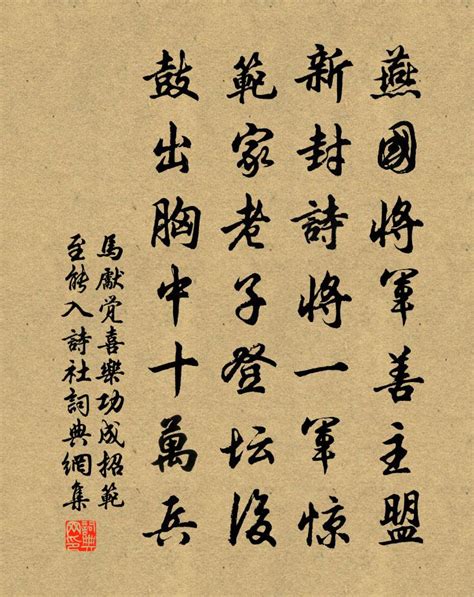 燕國將軍善主盟
新封詩將一軍惊
範家老子登坛後
鼓出胸中十萬兵
馬獻覚喜樂功成招範
至能入詩社詞典網集